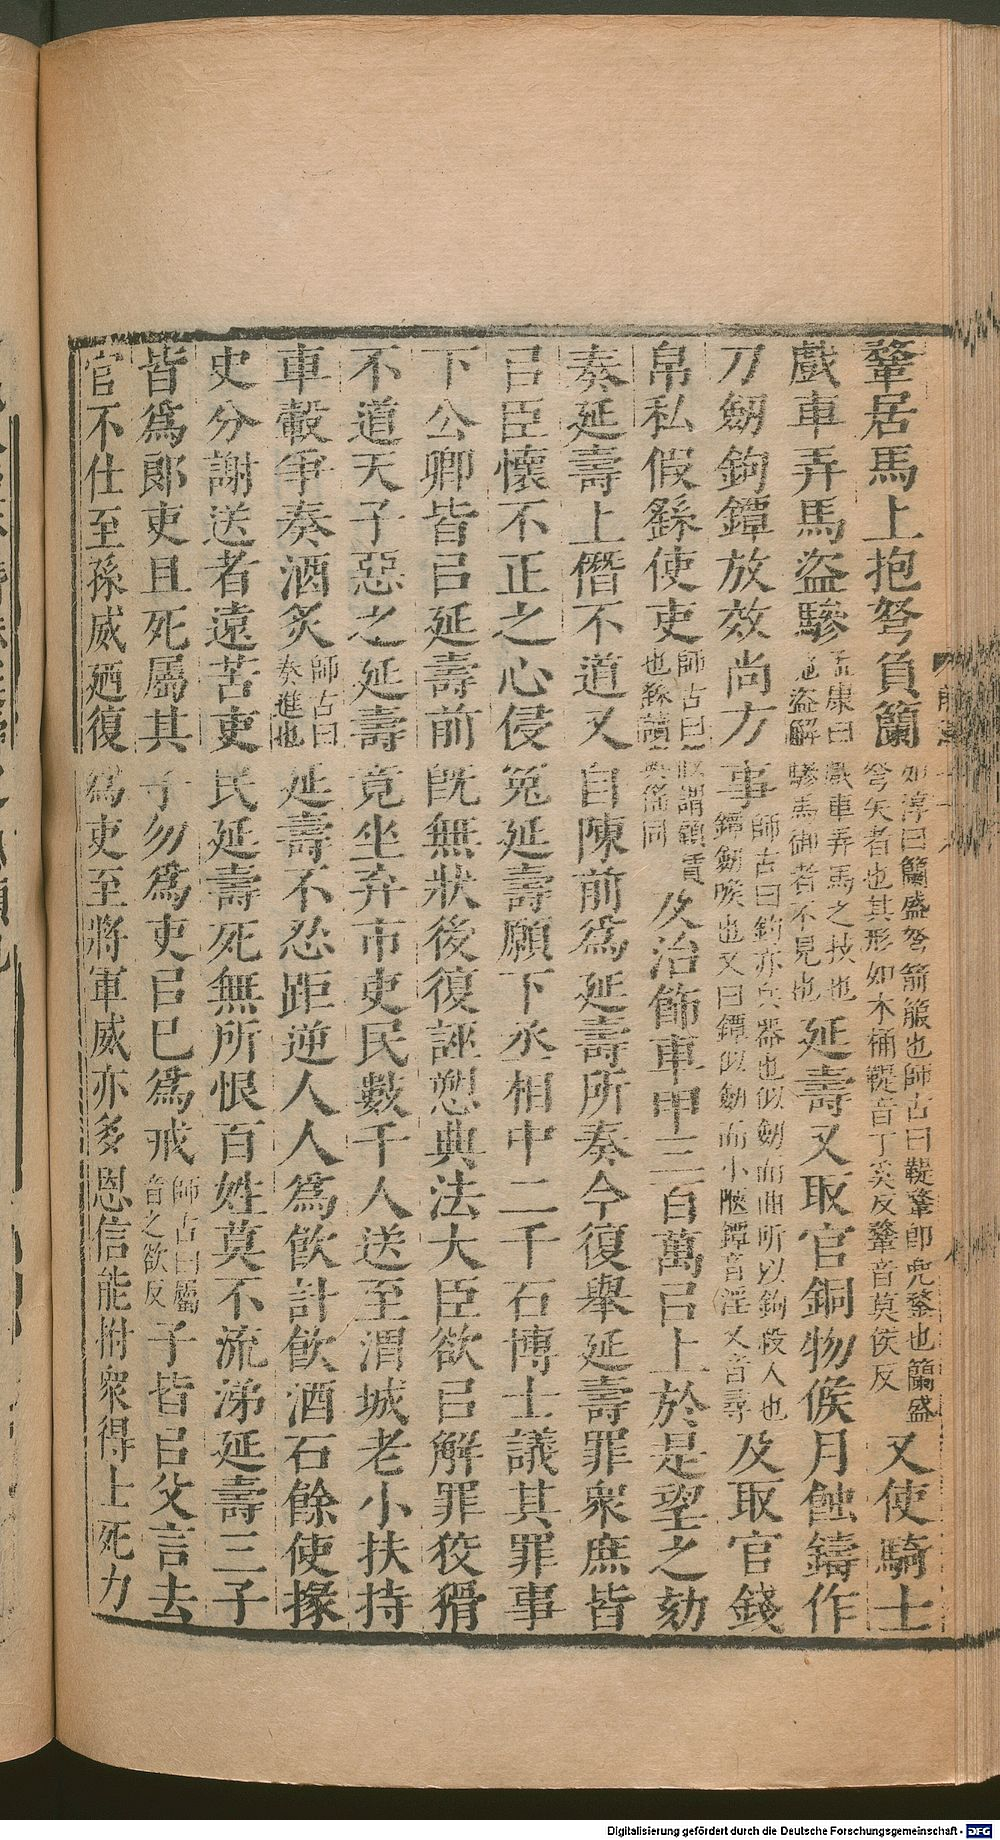 鞪居馬上抱弩負籣如淳曰籣盛弩箭箙也師古曰鞮鞪即兜鍪也籣盛弩矢者也其形如木桶鞮音丁奚反鞪音莫侯反又使騎士
戲車弄馬盜驂孟康曰戲車弄馬之技也盜解驂馬御者不見也延壽又取官銅物候月蝕鑄作
刀劒鉤鐔放效尚方事師古曰鉤亦兵器也似劒而曲所以鉤殺人也鐔劒喉也又曰鐔似劒而小陿鐔音淫又音尋及取官錢
帛私假繇使吏師古曰謂顧賃也繇讀與傜同及治飾車甲三百萬㠯上於是望之劾
奏延壽上僭不道又自陳前爲延壽所奏今復舉延壽罪衆庶皆
㠯臣懷不正之心侵冤延壽願下丞相中二千石博士議其罪事
下公卿皆㠯延壽前旣無狀後復誣愬典法大臣欲㠯解罪狡猾
不道天子惡之延壽竟坐弃市吏民數千人送至渭城老小扶持
車轂爭奏酒炙師古曰奏進也延壽不忍距逆人人爲飮計飮酒石餘使掾
史分謝送者遠苦吏民延壽死無所恨百姓莫不流涕延壽三子
皆爲郞吏且死屬其子勿爲吏㠯己爲戒師古曰屬音之欲反子皆㠯父言去
官不仕至孫威廼復爲吏至將軍威亦多恩信能拊衆得士死力
Digitalisierung gefördert durch die Deutsche Forschungsgemeinschaft - DFG